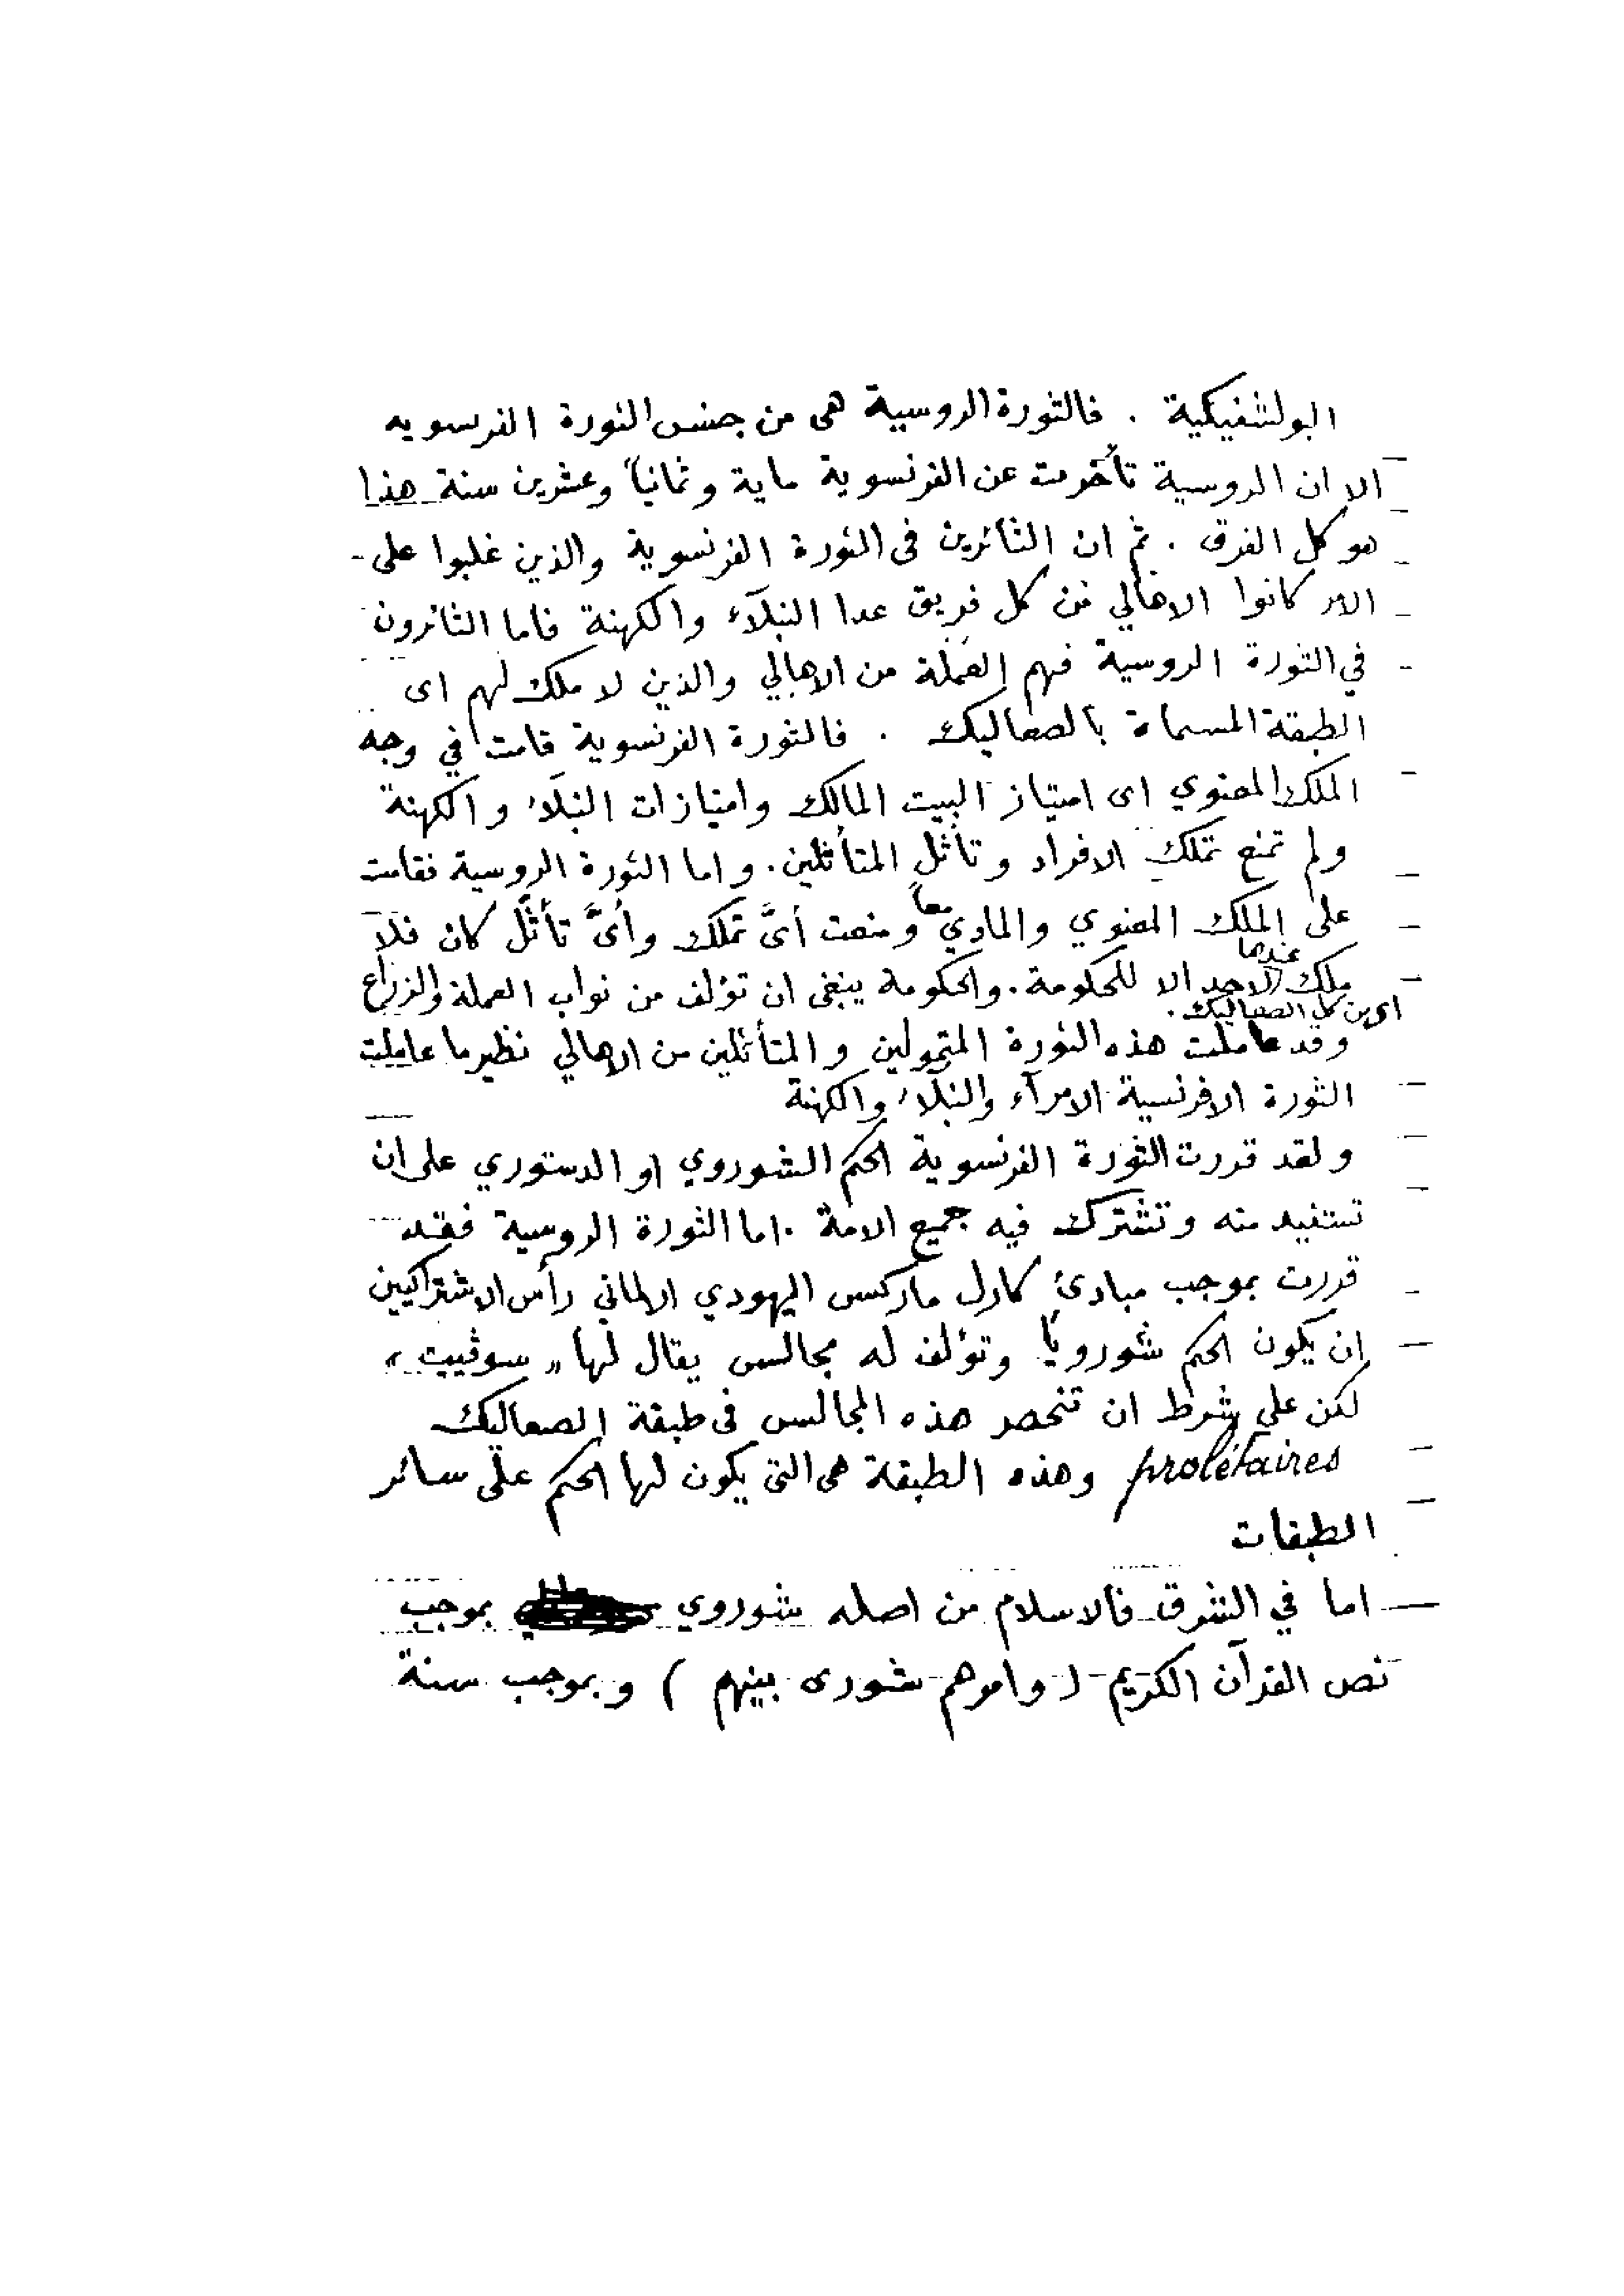 البولشفيكية . فالثورة الروسية هى من جنس الثورة الفرسويه
الا ان الروسية تأخرت عن الفرنسوية ماية وثمانياً وعشرين سنة هذا
هو كل الفرق . ثم ان الثائرين فى الثورة الفرنسوية والذين غلبوا على
الامر كانوا الاهالي من كل فريق عدا النبلآء والكهنة فاما الثائرون
في الثورة الروسية فهم العملة من الاهالي والذين لا ملك لهم اى
الطبقة المسماة بالصعاليك . فالثورة الفرنسوية قامت في وجه
الملك المعنوي اى امتياز البيت المالك وامتيازات النبلآء والكهنة
ولم تمنع تملك الافراد وتأثل المتأثلين. واما الثورة الروسية فقامت
على الملك المعنوي والمادي معاً ومنعت أىَّ تملك وأىَّ تأثّل كان فلا
ملك عندها لاحد الا للحكومة. والحكومة ينبغى ان تؤلف من نواب العملة والزراع
اى من كل الصعاليك.
وقد عاملت هذه الثورة المتمولين والمتأثلين من الاهالي نظير ما عاملت
الثورة الافرنسية الامرآء والنبلآء والكهنة
ولقد قررت الثورة الفرنسوية الحكم الشوروي او الدستوري على ان
تستفيد منه وتشترك فيه جميع الامة . اما الثورة الروسية فقد
قررت بموجب مبادئ كارل ماركس اليهودي الالماني رأس الاشتراكيين
ان يكون الحكم شورويًا وتؤلف له مجالس يقال لها „ سوڤييت „
لكن على شرط ان تنحصر هذه المجالس فى طبقة الصعاليك
prolétaires وهذه الطبقة هى التى يكون لها الحكم على سائر
الطبقات
اما في الشرق فالاسلام من اصله شوروي بموجب
نص القرآن الكريم ( وامرهم شورى بينهم ) وبموجب سنة